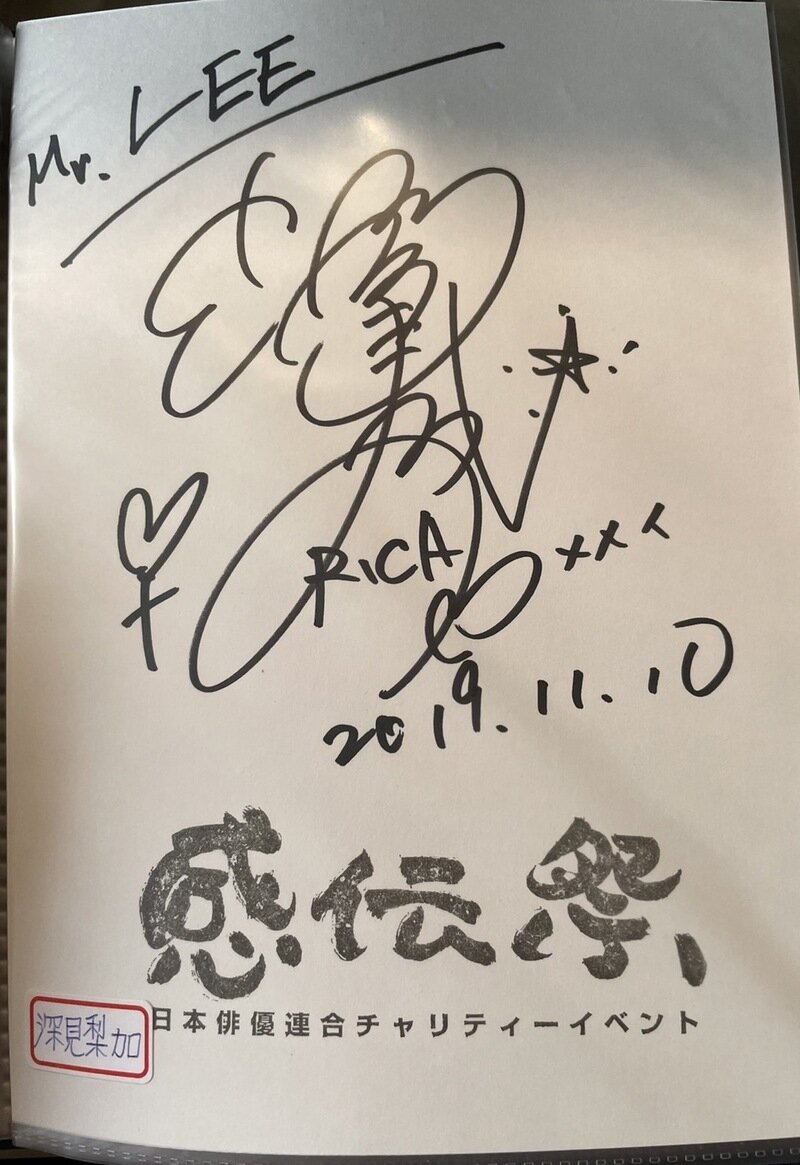 Mr. LEE
RICA xxx
2019.11.10
感伝祭
日本俳優連合チャリティーイベント
深見梨加